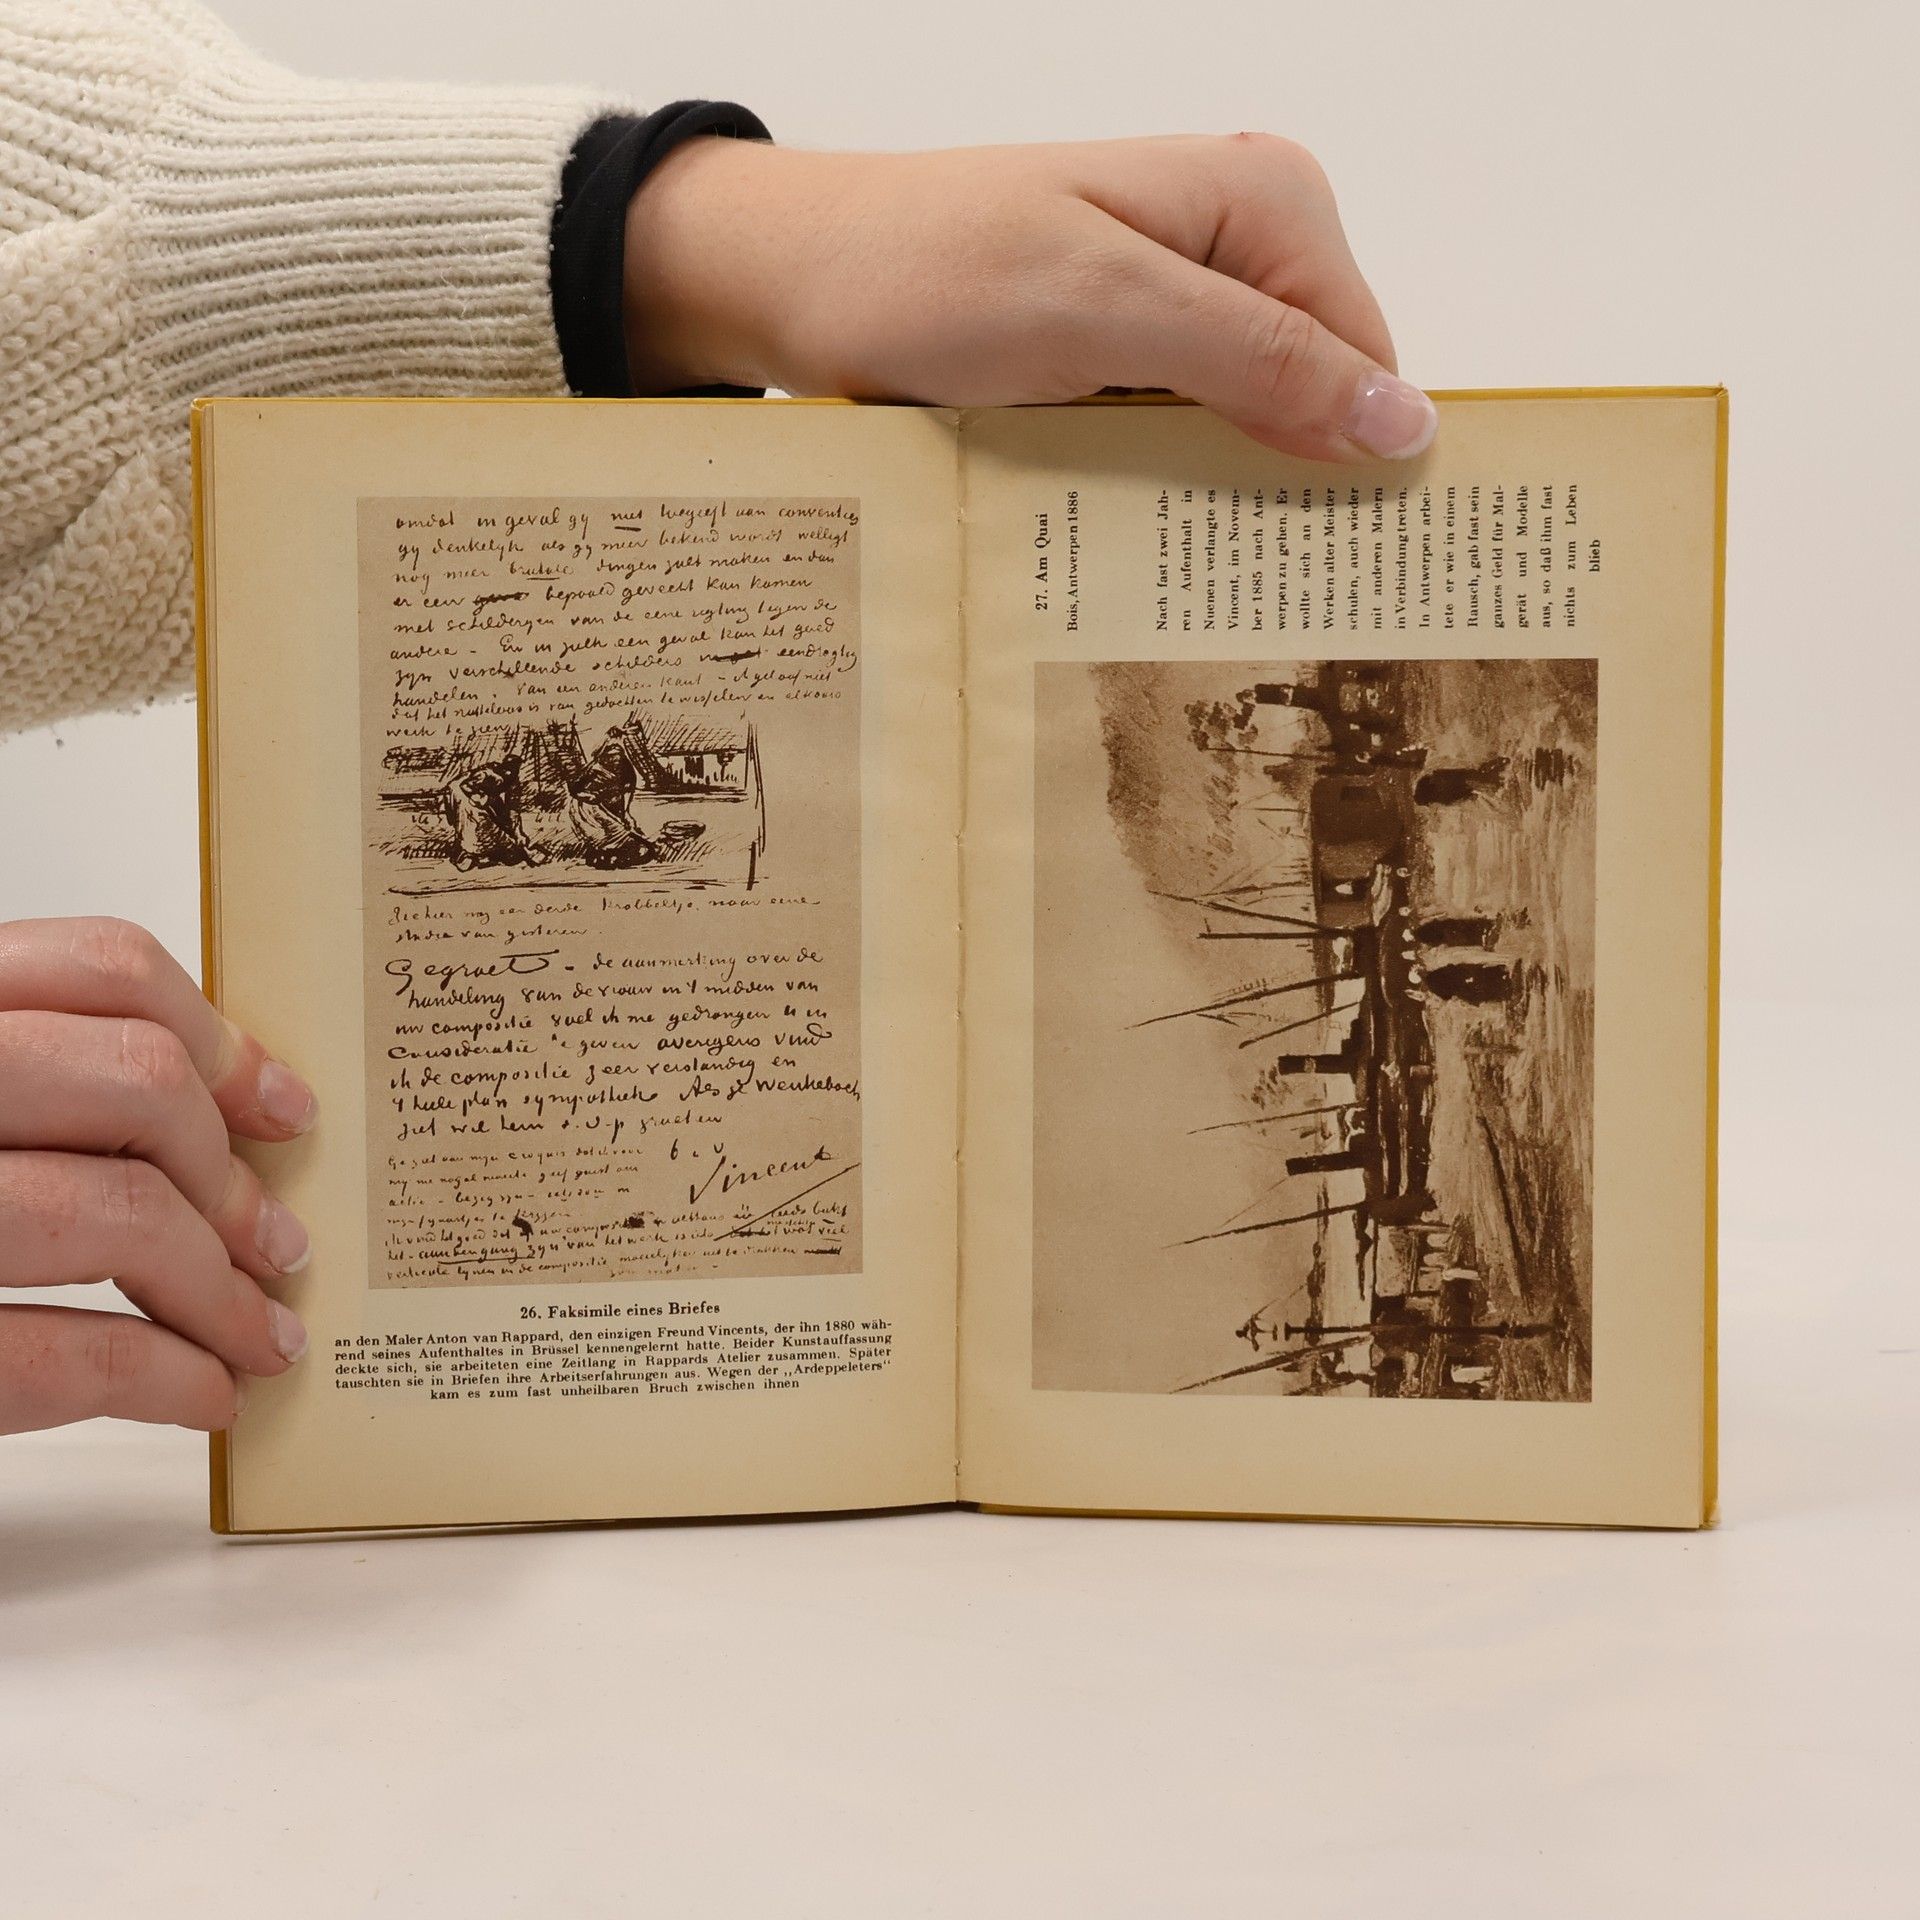 omdat in geval gy niet toegeeft aan conventies
gy denkelyk als gy meer bekend wordt welligt
nog meer brutale dingen zult maken en dan
er een bepaald gevecht kan komen
met schildergen van de eene rigting tegen de
andere - En in zulk een geval kan het goed
zyn verschillende schilders eendragtig
handelen. Van een anderen kant - ik geloof niet
dat het nutteloos is van gedachten te wisselen en elkaars
werk te zien
Ziehier nog een derde Krabbeltje, naar eene
studie van gisteren.
Gegroet - de aanmerking over de
handeling van de vrouw in 't midden van
uw compositie voel ik me gedrongen U in
Consideratie te geven overigens vind
ik de compositie zeer verstandig en
't heele plan sympathiek Als je Wenkebach
ziet wil hem s.v.p groeten
Vincent
26. Faksimile eines Briefes
an den Maler Anton van Rappard, den einzigen Freund Vincents, der ihn 1880 wäh-
rend seines Aufenthaltes in Brüssel kennengelernt hatte. Beider Kunstauffassung
deckte sich, sie arbeiteten eine Zeitlang in Rappards Atelier zusammen. Später
tauschten sie in Briefen ihre Arbeitserfahrungen aus. Wegen der „Ardeppeleters“
kam es zum fast unheilbaren Bruch zwischen ihnen
27. Am Quai
Bois, Antwerpen 1886
Nach fast zwei Jah-
ren Aufenthalt in
Nuenen verlangte es
Vincent, im Novem-
ber 1885 nach Ant-
werpen zu gehen. Er
wollte sich an den
Werken alter Meister
schulen, auch wieder
mit anderen Malern
in Verbindung treten.
In Antwerpen arbei-
tete er wie in einem
Rausch, gab fast sein
ganzes Geld für Mal-
gerät und Modelle
aus, so daß ihm fast
nichts zum Leben
blieb